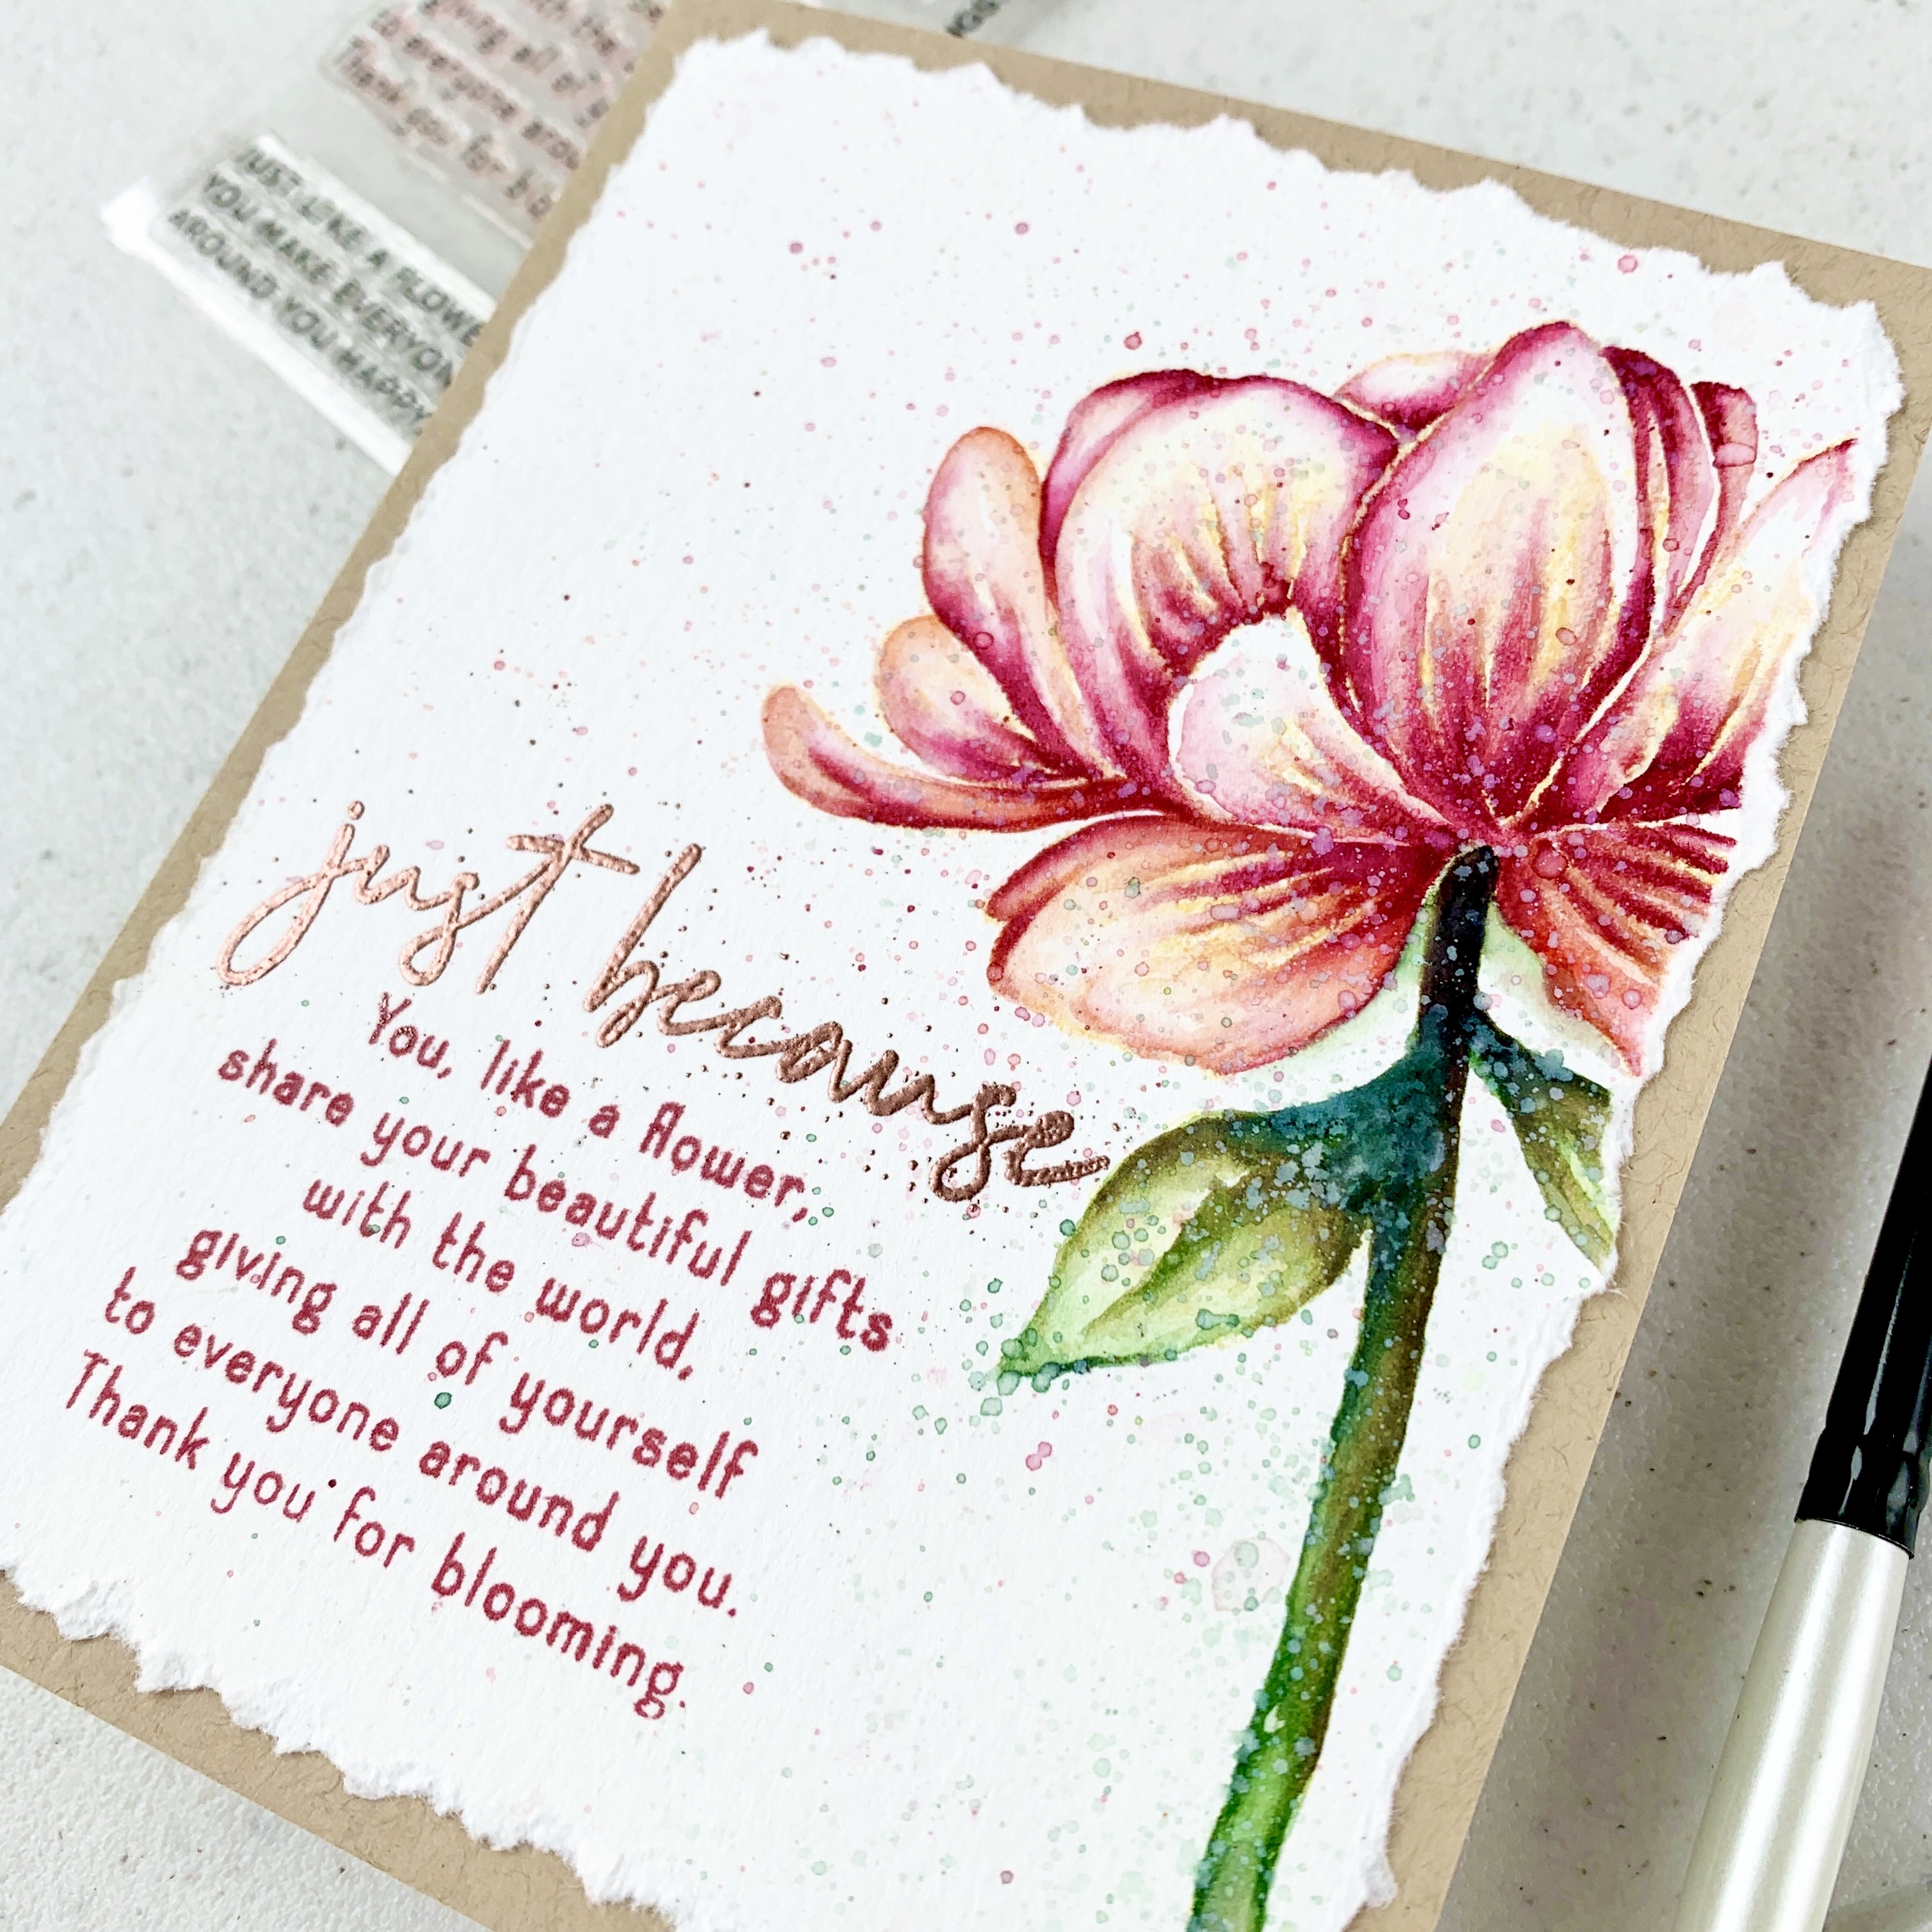 JUST LIKE A FLOWE
YOU MAKE EVERYON
AROUND YOU HAPPY
just because
You, like a flower,
share your beautiful gifts
with the world,
giving all of yourself
to everyone around you.
Thank you for blooming.